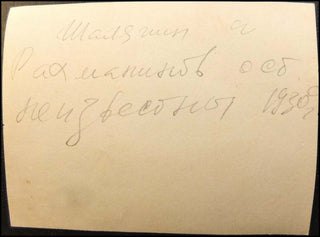 Шаляпин и
Рахманинов ост.
неизвестны 1930г